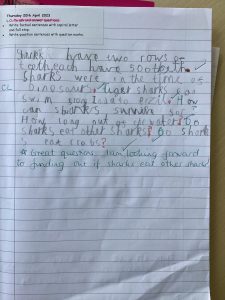 Thursday 20th April 2023
L.O. To ask and answer questions.
• Write factual sentences with capital letter
and full stop.
• Write question sentences with question marks.
Sharks have two rows of
teeth each have 50 teeth.
Sharks were in the time of
CL Dinosaurs. Tiger sharks
swim How
can sharks survive so
How long out of water? Do
sharks eat other sharks? Do shark
s eat crabs?
* Great question. I am looking forward
to finding out if sharks eat other shark